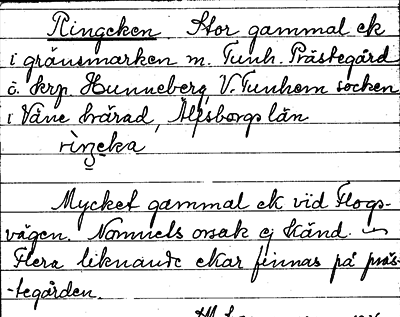 Ringeken. Stor gammal ek
i gränsmarken m. Tunh. Prästegård
o. krp. Hunneberg, V. Tunhem socken
i Väne härad, Älfsborgs län
Mycket gammal ek vid Flogs-
vägen. Namnets orsak ej känd.
Flera liknande ekar finnas på präs-
-tegården.